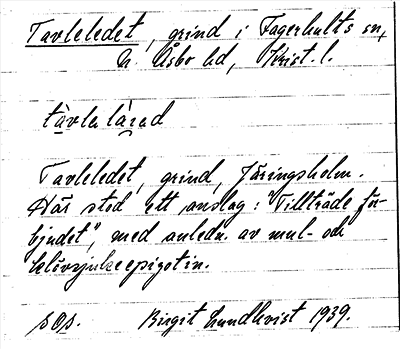 Tavleledet, grind i Fagerhults sn,
N. Åsbo hd, Krist. l.
tàvlelǻred
Tavleledet, grind, Järingsholm.
Här stod ett anslag: "Tillträde för-
bjudet", med anledn. av mul- och
klövsjukeepizotin.
SOS. Birgit Lundkvist 1939.